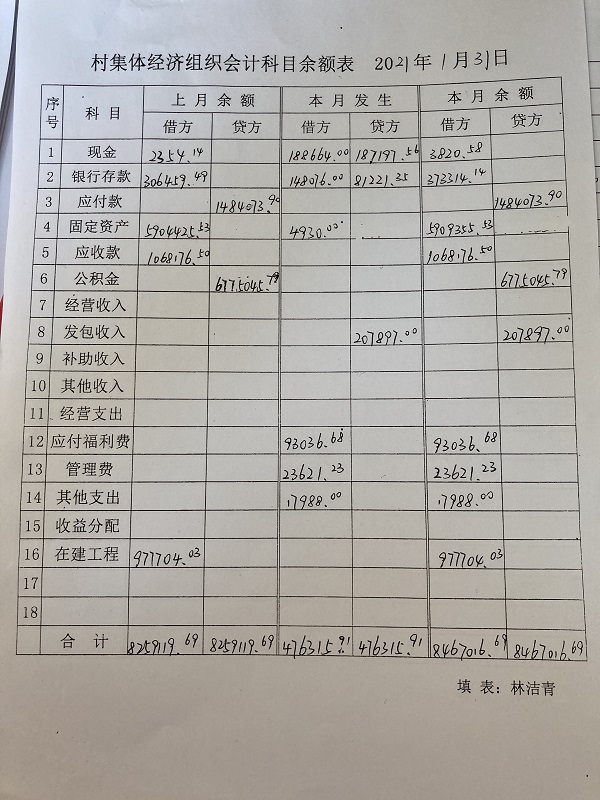 村集体经济组织会计科目余额表 2021年1月31日
序号 科目 上月余额 本月发生 本月余额
借方 贷方 借方 贷方 借方 贷方
1 现金 2354.14 188664.00 187197.56 3820.58
2 银行存款 306459.49 148076.00 81221.35 373314.14
3 应付款 1484073.90 1484073.90
4 固定资产 5904425.53 4930.00 5909355.53
5 应收款 1068176.50 1068176.50
6 公积金 6775045.79 6775045.79
7 经营收入
8 发包收入 207897.00 207897.00
9 补助收入
10 其他收入
11 经营支出
12 应付福利费 93036.68 93036.68
13 管理费 23621.23 23621.23
14 其他支出 17988.00 17988.00
15 收益分配
16 在建工程 977704.03 977704.03
17
18
合计 8259119.69 8259119.69 476315.91 476315.91 8467016.69 8467016.69
填表：林洁青